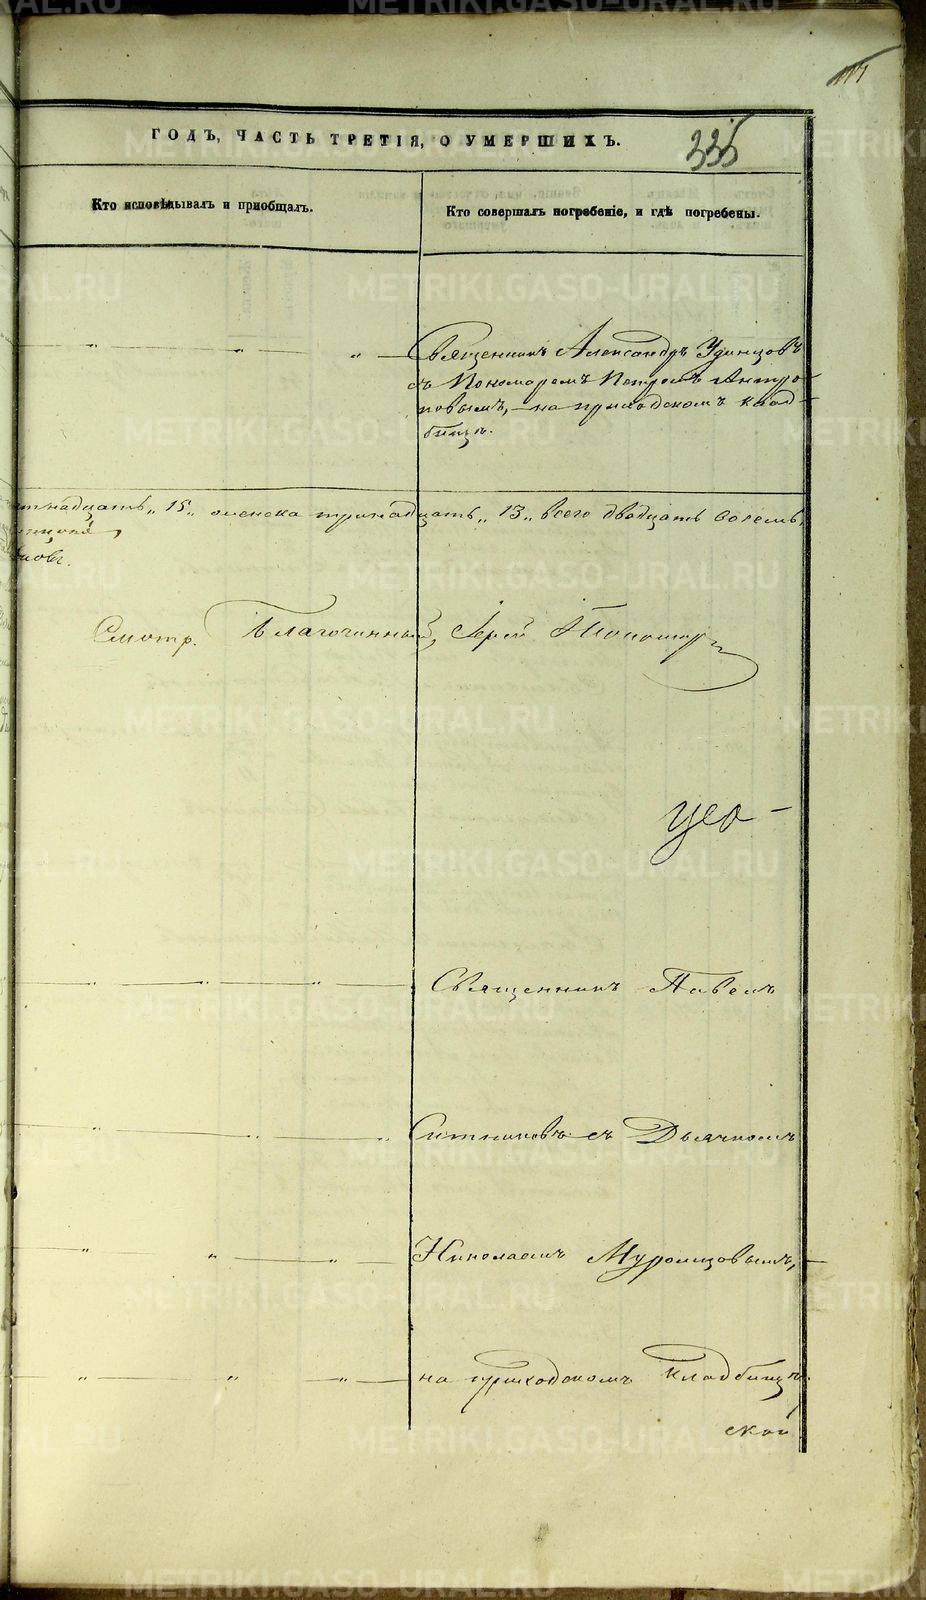 ГОДЪ, ЧАСТЬ ТРЕТІЯ, О УМЕРШИХЪ.
335
Кто исповѣдывалъ и приобщалъ.
Кто совершалъ погребеніе, и гдѣ погребены.
Священникъ Александръ Удинцовъ
съ Пономаремъ Петромъ Антро-
повымъ, на приходскомъ клад-
бищѣ.
тнадцать „15„ женска тринадцать „13„ всего двадцать восемь,
Смотр. Благочинный, Іерей
Священникъ Павелъ
Ситниковъ съ Дьячкомъ
Николаемъ Муромцовымъ,
на приходскомъ кладбищѣ.
ской
METRIKI.GASO-URAL.RU